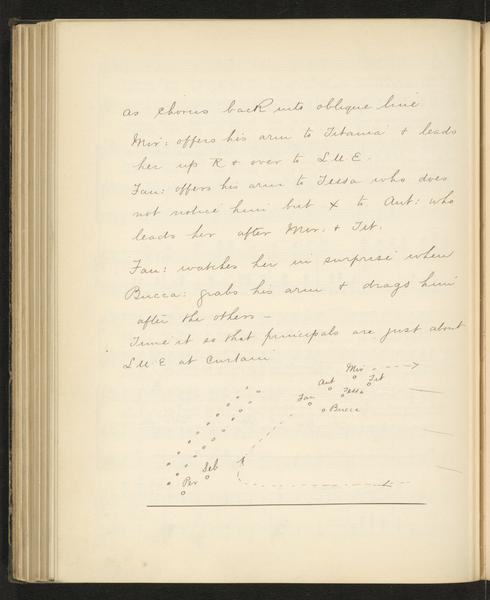 as chorus back into oblique line
Mir: offers his arm to Titania & leads
her up R & over to L U E.
Fau: offers his arm to Tessa who does
not notice him but X to Aut: who
leads her after Mir: & Tit.
Fau: watches her in surprise when
Bucca: grabs his arm & drags him
after the others —
Time it so that principals are just about
L U E at Curtain
Mir
Aut
Tit
Tessa
Fau
Bucca
Seb
Per